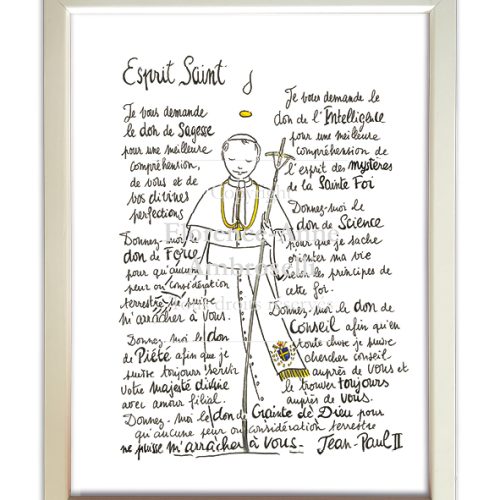 Esprit Saint
Je vous demande
le don de Sagesse
pour une meilleure
compréhension,
de vous et de
vos divines
perfections
Je vous demande le
don de l'Intelligence
pour une meilleure
compréhension de
l'esprit des mystères
de la Sainte Foi
Donnez-moi le
don de Science
pour que je sache
orienter ma vie
selon les principes de
cette foi.
Donnez-moi le don de
Conseil afin qu'en
toute chose je puisse
chercher conseil
auprès de vous et
le trouver toujours
auprès de vous.
Donnez-moi le
don de Force
pour qu'aucune
peur ou considération
terrestre ne puisse
m'arracher à vous.
Donnez-moi le don
de Piété afin que je
puisse toujours servir
votre majesté divine
avec amour filial.
Donnez-moi le don de Crainte de Dieu pour
qu'aucune peur ou considération terrestre
ne puisse m'arracher à vous. Jean-Paul II
Copyright
Florence-Anne
Ambroselli
droits réservés